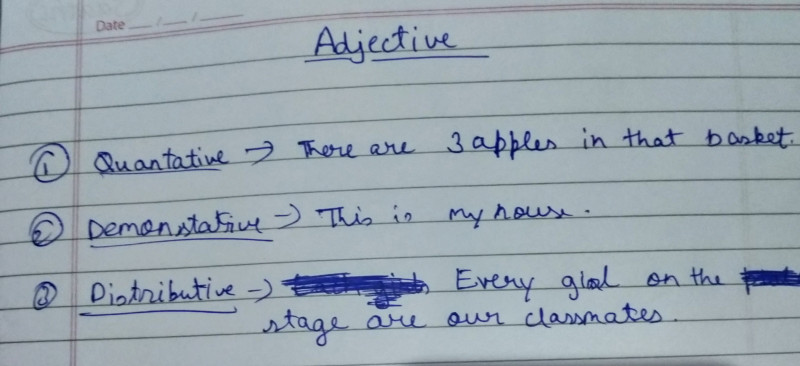 Date
Adjective
① Quantative → There are 3 apples in that basket.
② Demonstative → This is my house.
③ Distributive → Every giol on the
stage are our classmates.